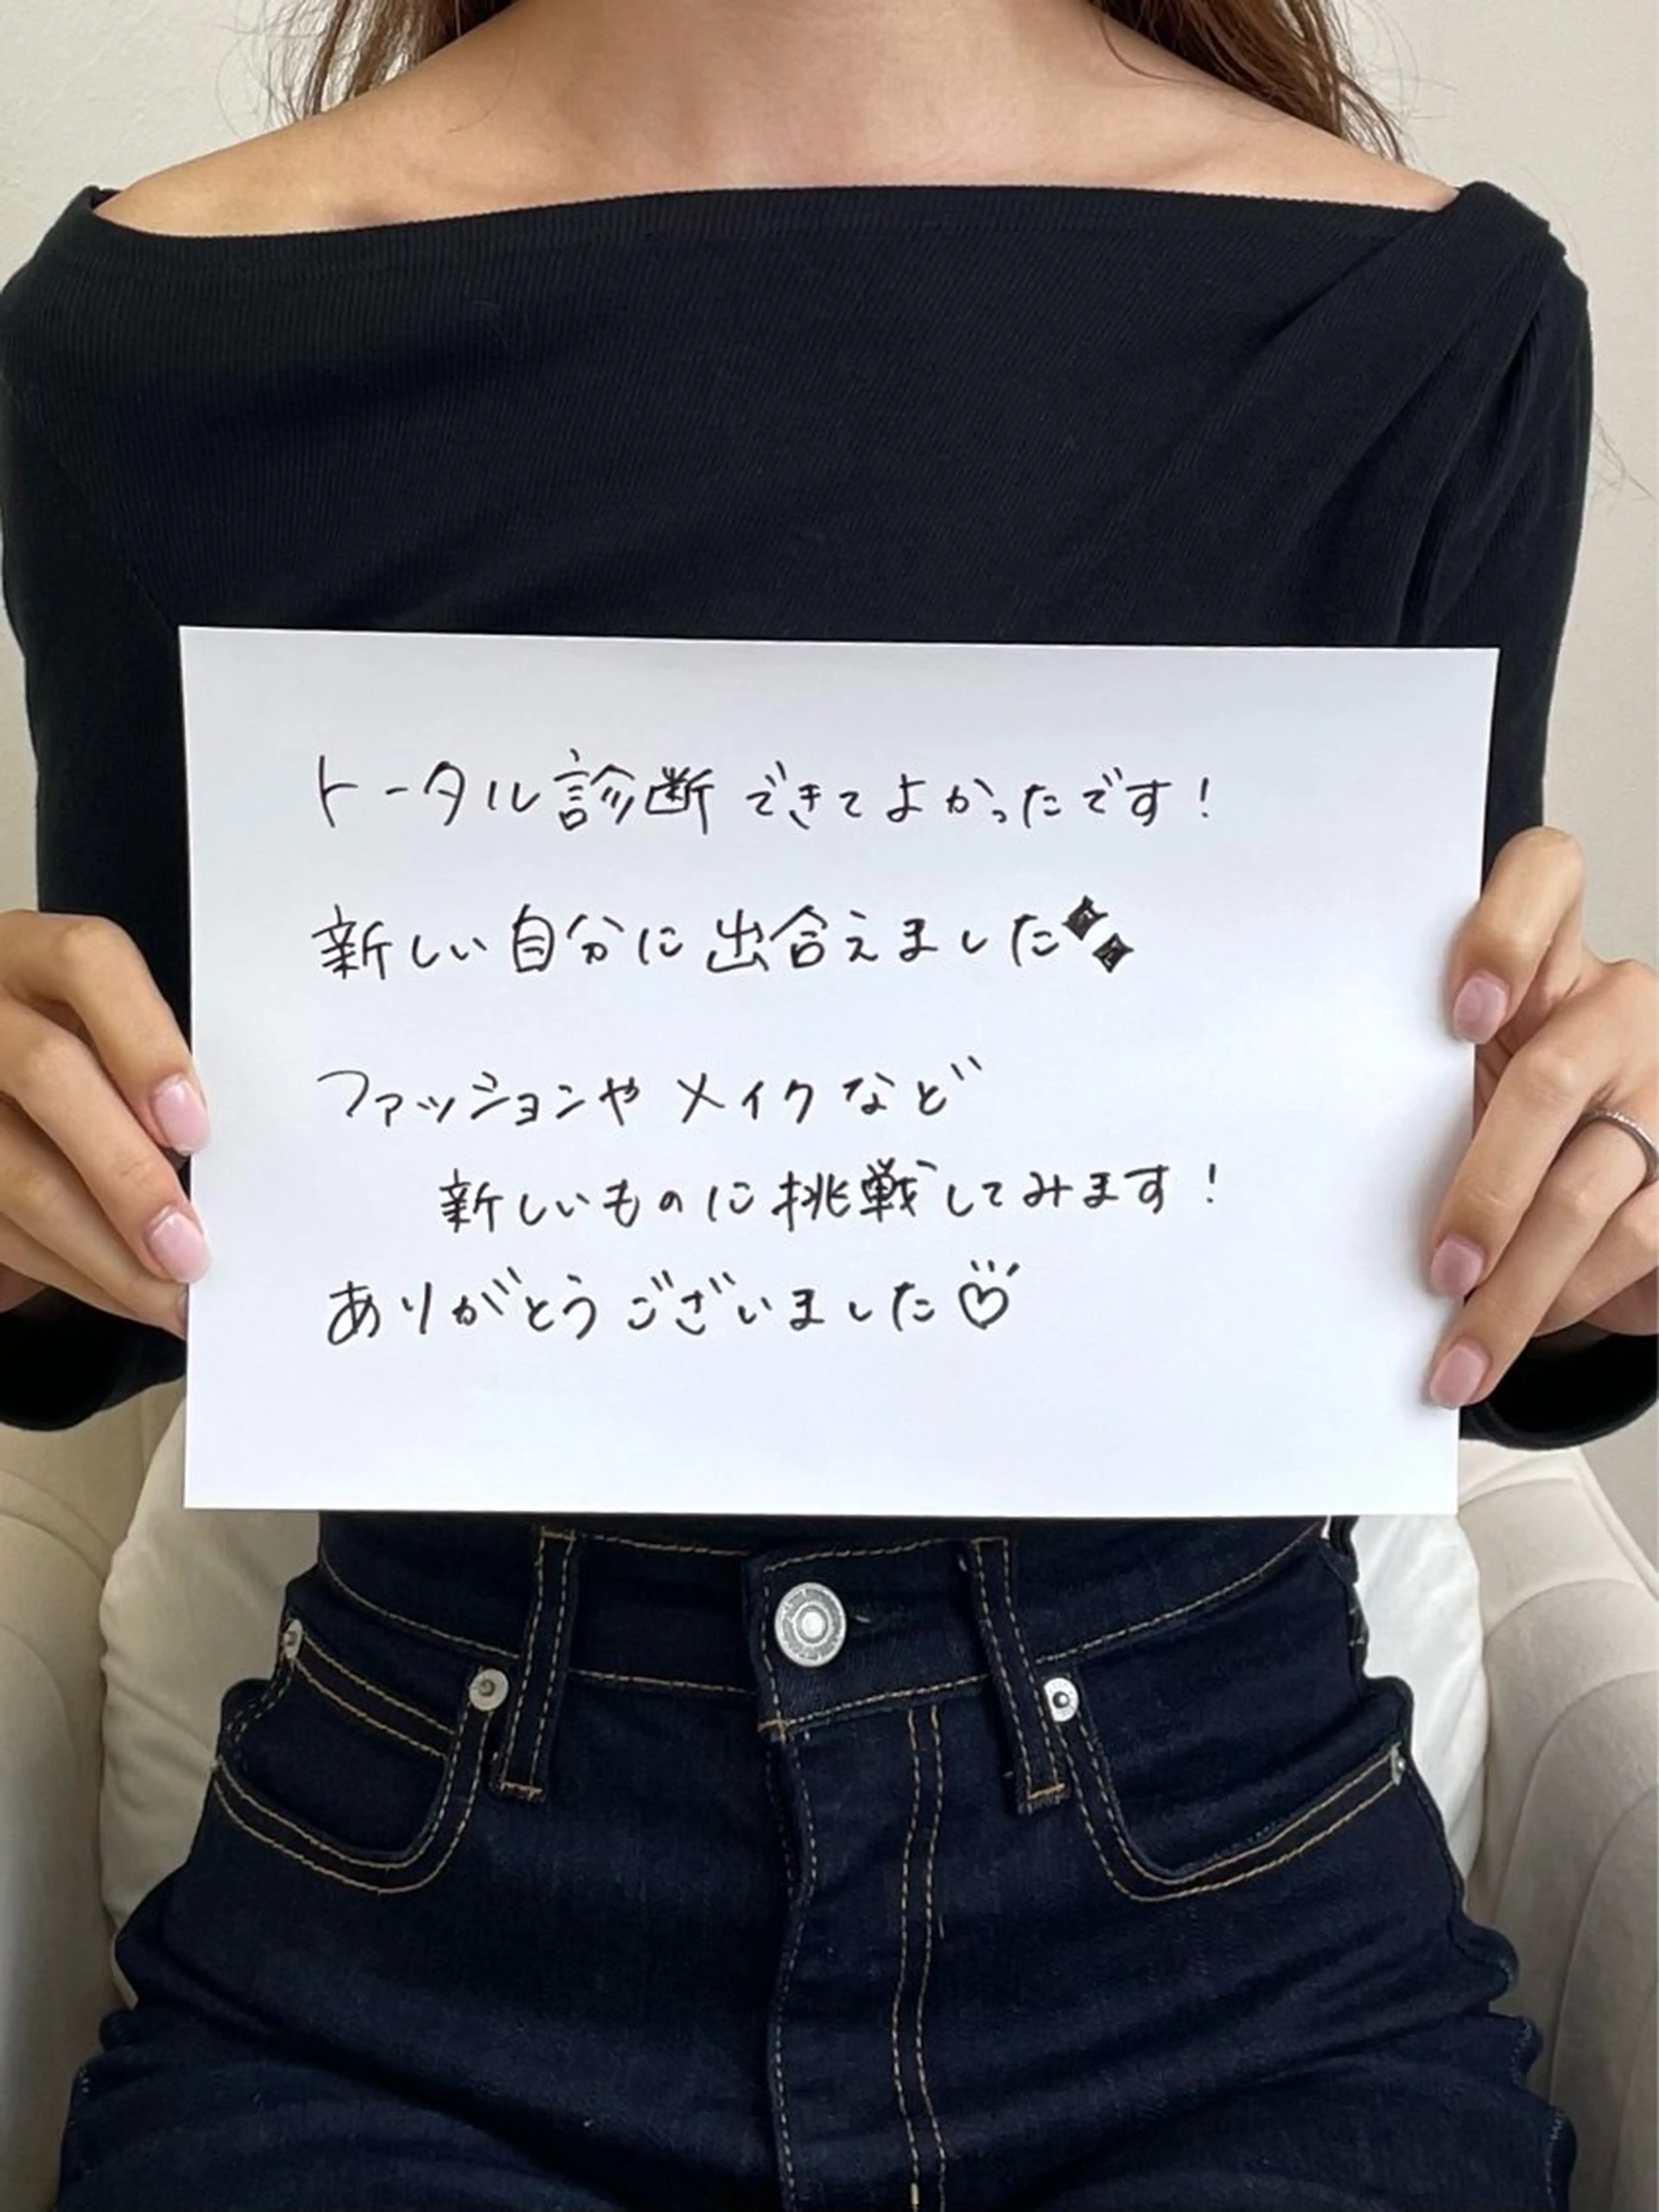 トータル診断できてよかったです!
新しい自分に出合えました✦✦
ファッションやメイクなど
新しいものに挑戦してみます!
ありがとうございました♡